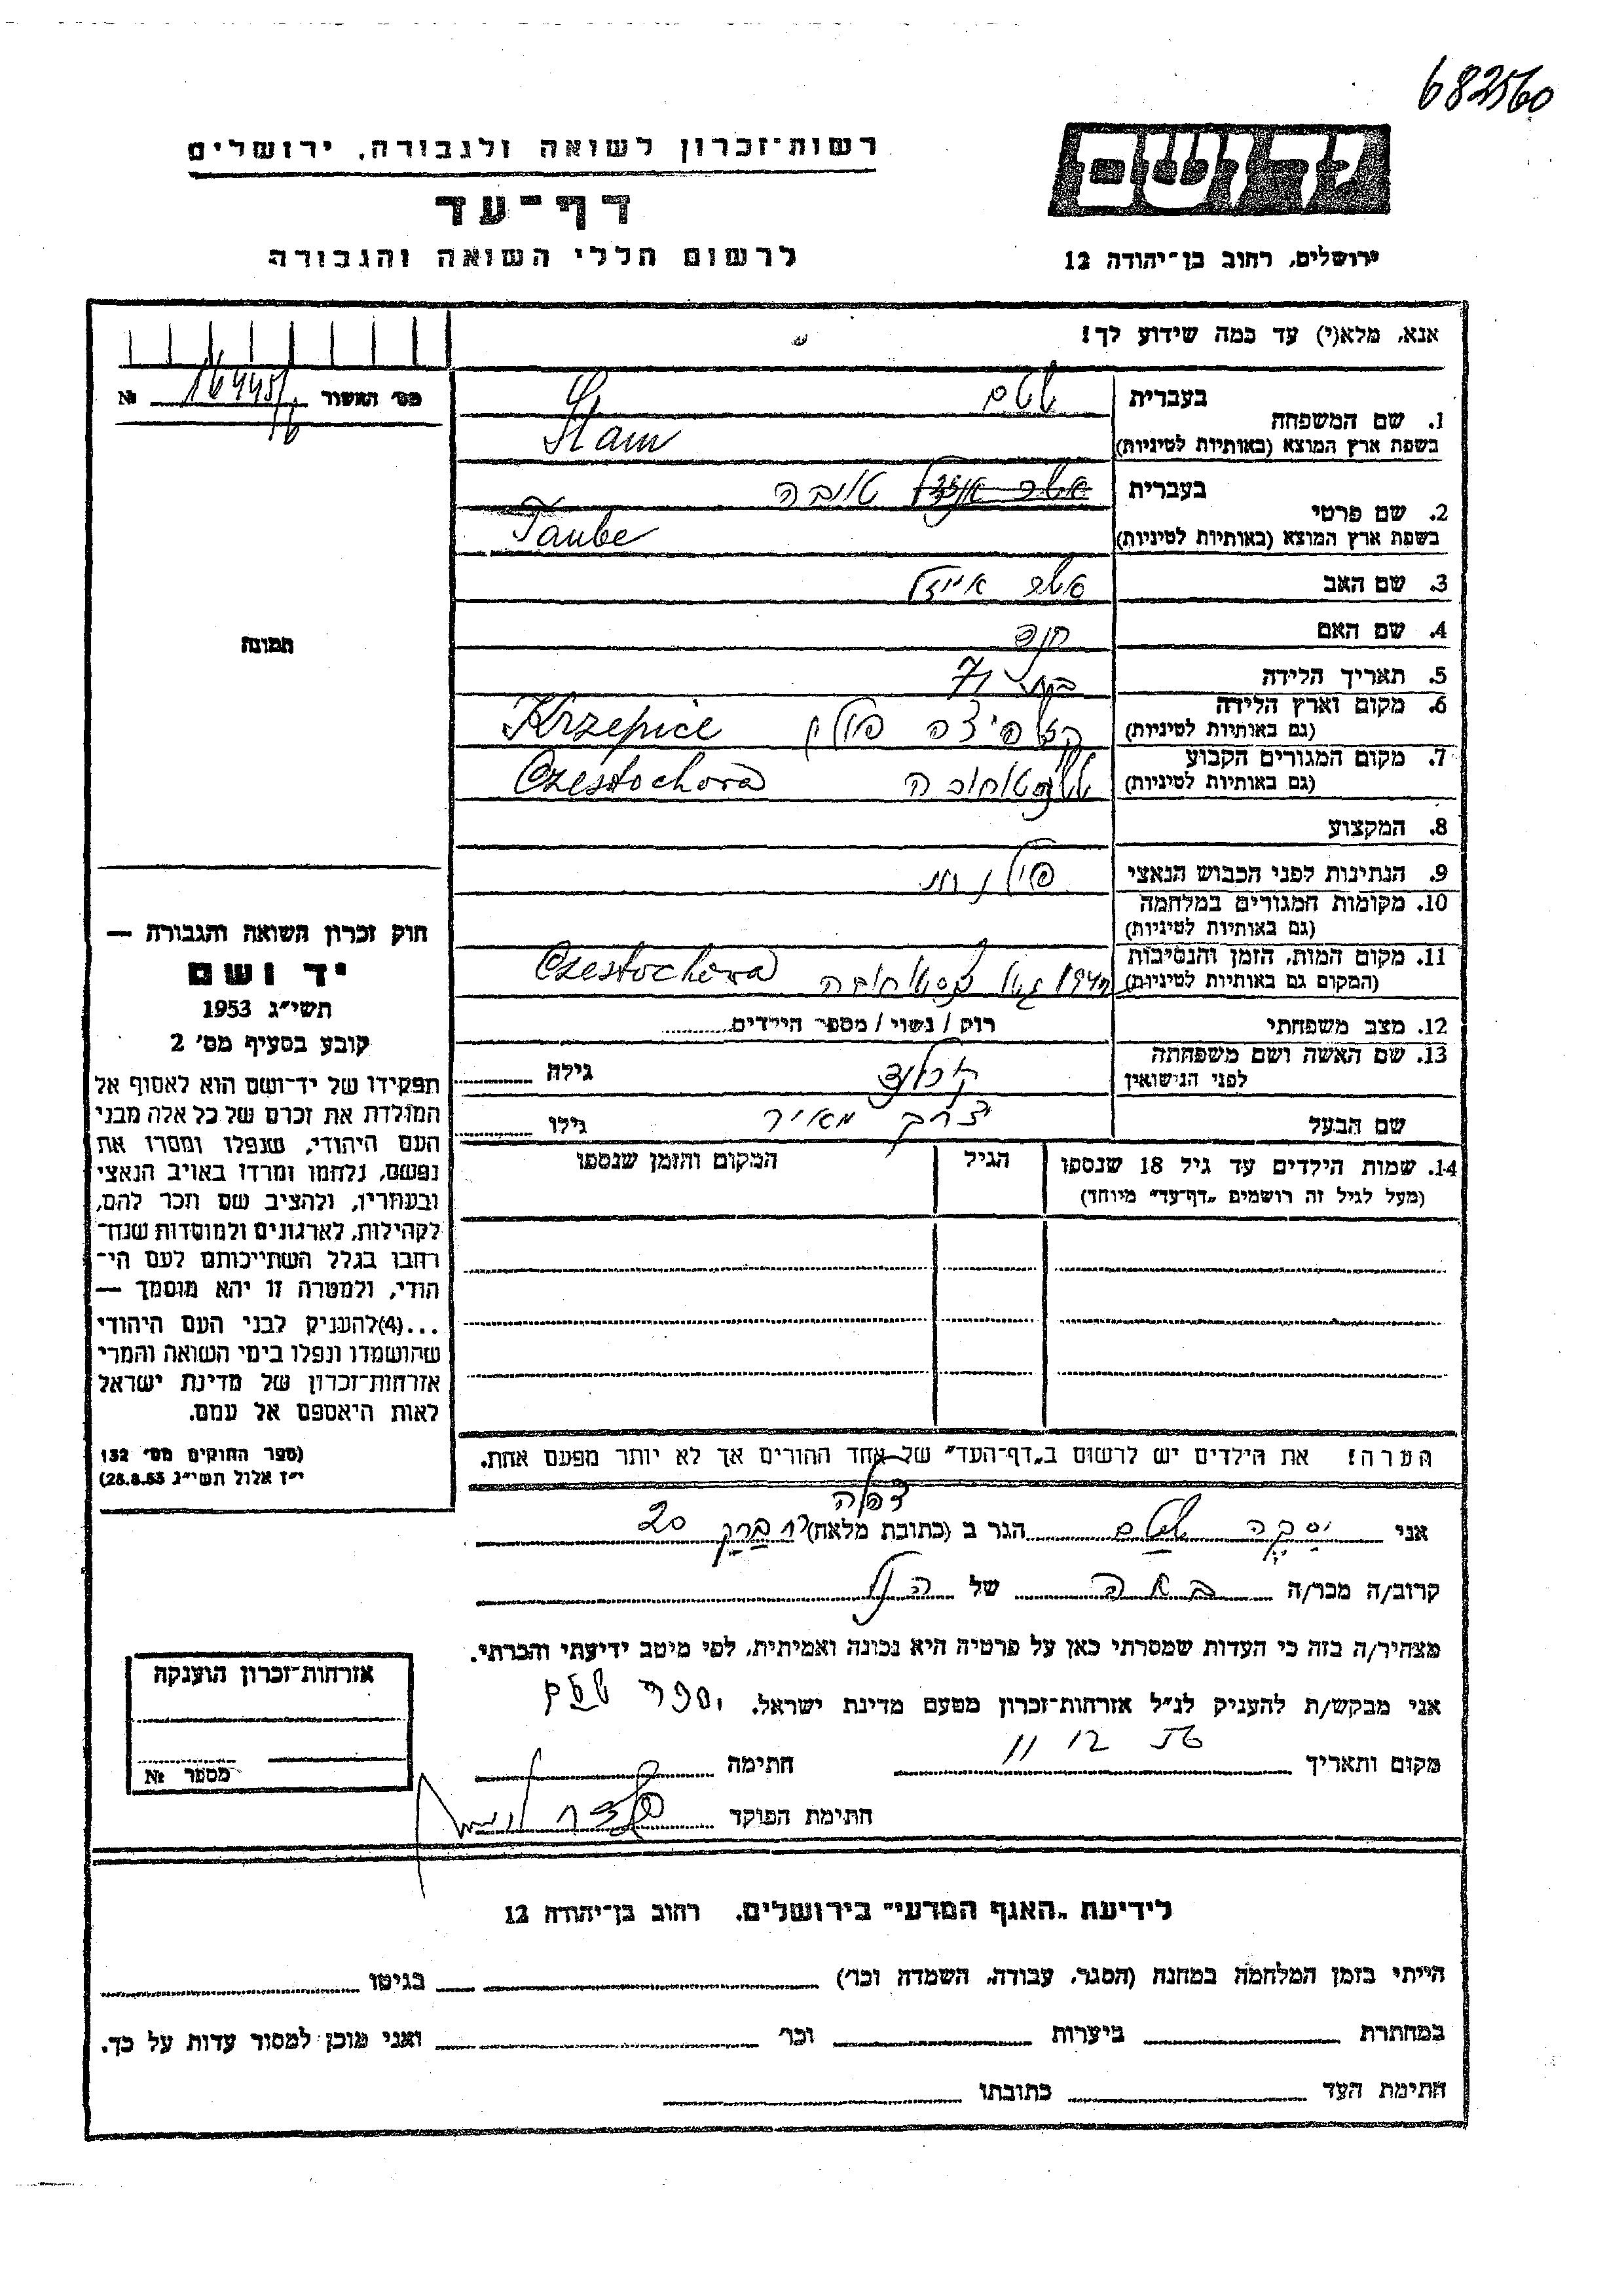 682560
רשות־זכרון לשואה ולגבורה, ירושלים
דף־עד
לרשום חללי השואה והגבורה
יד ושם
ירושלים, רחוב בן־יהודה 12
אנא, מלא(י) עד כמה שידוע לך!
מס' האשור № 
1. שם המשפחה
בעברית שטם
בשפת ארץ המוצא (באותיות לטיניות) Stam
2. שם פרטי
בעברית טובה
בשפת ארץ המוצא (באותיות לטיניות) Taube
3. שם האב אייזל
4. שם האם חנה
5. תאריך הלידה 71
6. מקום וארץ הלידה
(גם באותיות לטיניות) קז'פיצה פולין Krzepice
7. מקום המגורים הקבוע
(גם באותיות לטיניות) Czestochova
8. המקצוע
9. הנתינות לפני הכבוש הנאצי פולנית
10. מקומות המגורים במלחמה
(גם באותיות לטיניות)
11. מקום המות, הזמן והנסיבות
(המקום גם באותיות לטיניות) Czestochova
12. מצב משפחתי רוק / נשוי / מספר הילדים
13. שם האשה ושם משפחתה
לפני הנישואין גילה
שם הבעל יצחק מאיר גילו
14. שמות הילדים עד גיל 18 שנספו הגיל המקום והזמן שנספו
(מעל לגיל זה רושמים „דף־עד" מיוחד)
הערה! את הילדים יש לרשום ב„דף־העד" של אחד ההורים אך לא יותר מפעם אחת.
תמונה
חוק זכרון השואה והגבורה —
יד ושם
תשי"ג 1953
קובע בסעיף מס' 2
תפקידו של יד־ושם הוא לאסוף אל
המולדת את זכרם של כל אלה מבני
העם היהודי, שנפלו ומסרו את
נפשם, נלחמו ומרדו באויב הנאצי
ובעוזריו, ולהציב שם וזכר להם,
לקהילות, לארגונים ולמוסדות שנח־
רבו בגלל השתייכותם לעם הי־
הודי, ולמטרה זו יהא מוסמך —
...(4)להעניק לבני העם היהודי
שהושמדו ונפלו בימי השואה והמרי
אזרחות־זכרון של מדינת ישראל
לאות היאספם אל עמם.
(ספר החוקים מס' 132
י"ז אלול תשי"ג 28.8.53)
אני שטם הגר ב (כתובת מלאה) ברק 20
קרוב/ה מכר/ה של הנ"ל
מצהיר/ה בזה כי העדות שמסרתי כאן על פרטיה היא נכונה ואמיתית, לפי מיטב ידיעתי והכרתי.
אני מבקש/ת להעניק לנ"ל אזרחות־זכרון מטעם מדינת ישראל.
מקום ותאריך 11 12 חתימה
חתימת הפוקד
אזרחות־זכרון הוענקה
מספר №
לידיעת „האגף המדעי" בירושלים. רחוב בן־יהודה 12
הייתי בזמן המלחמה במחנה (הסגר, עבודה, השמדה וכר') בגיטו
במחתרת ביערות וכר' ואני מוכן למסור עדות על כך.
חתימת העד כתובתו